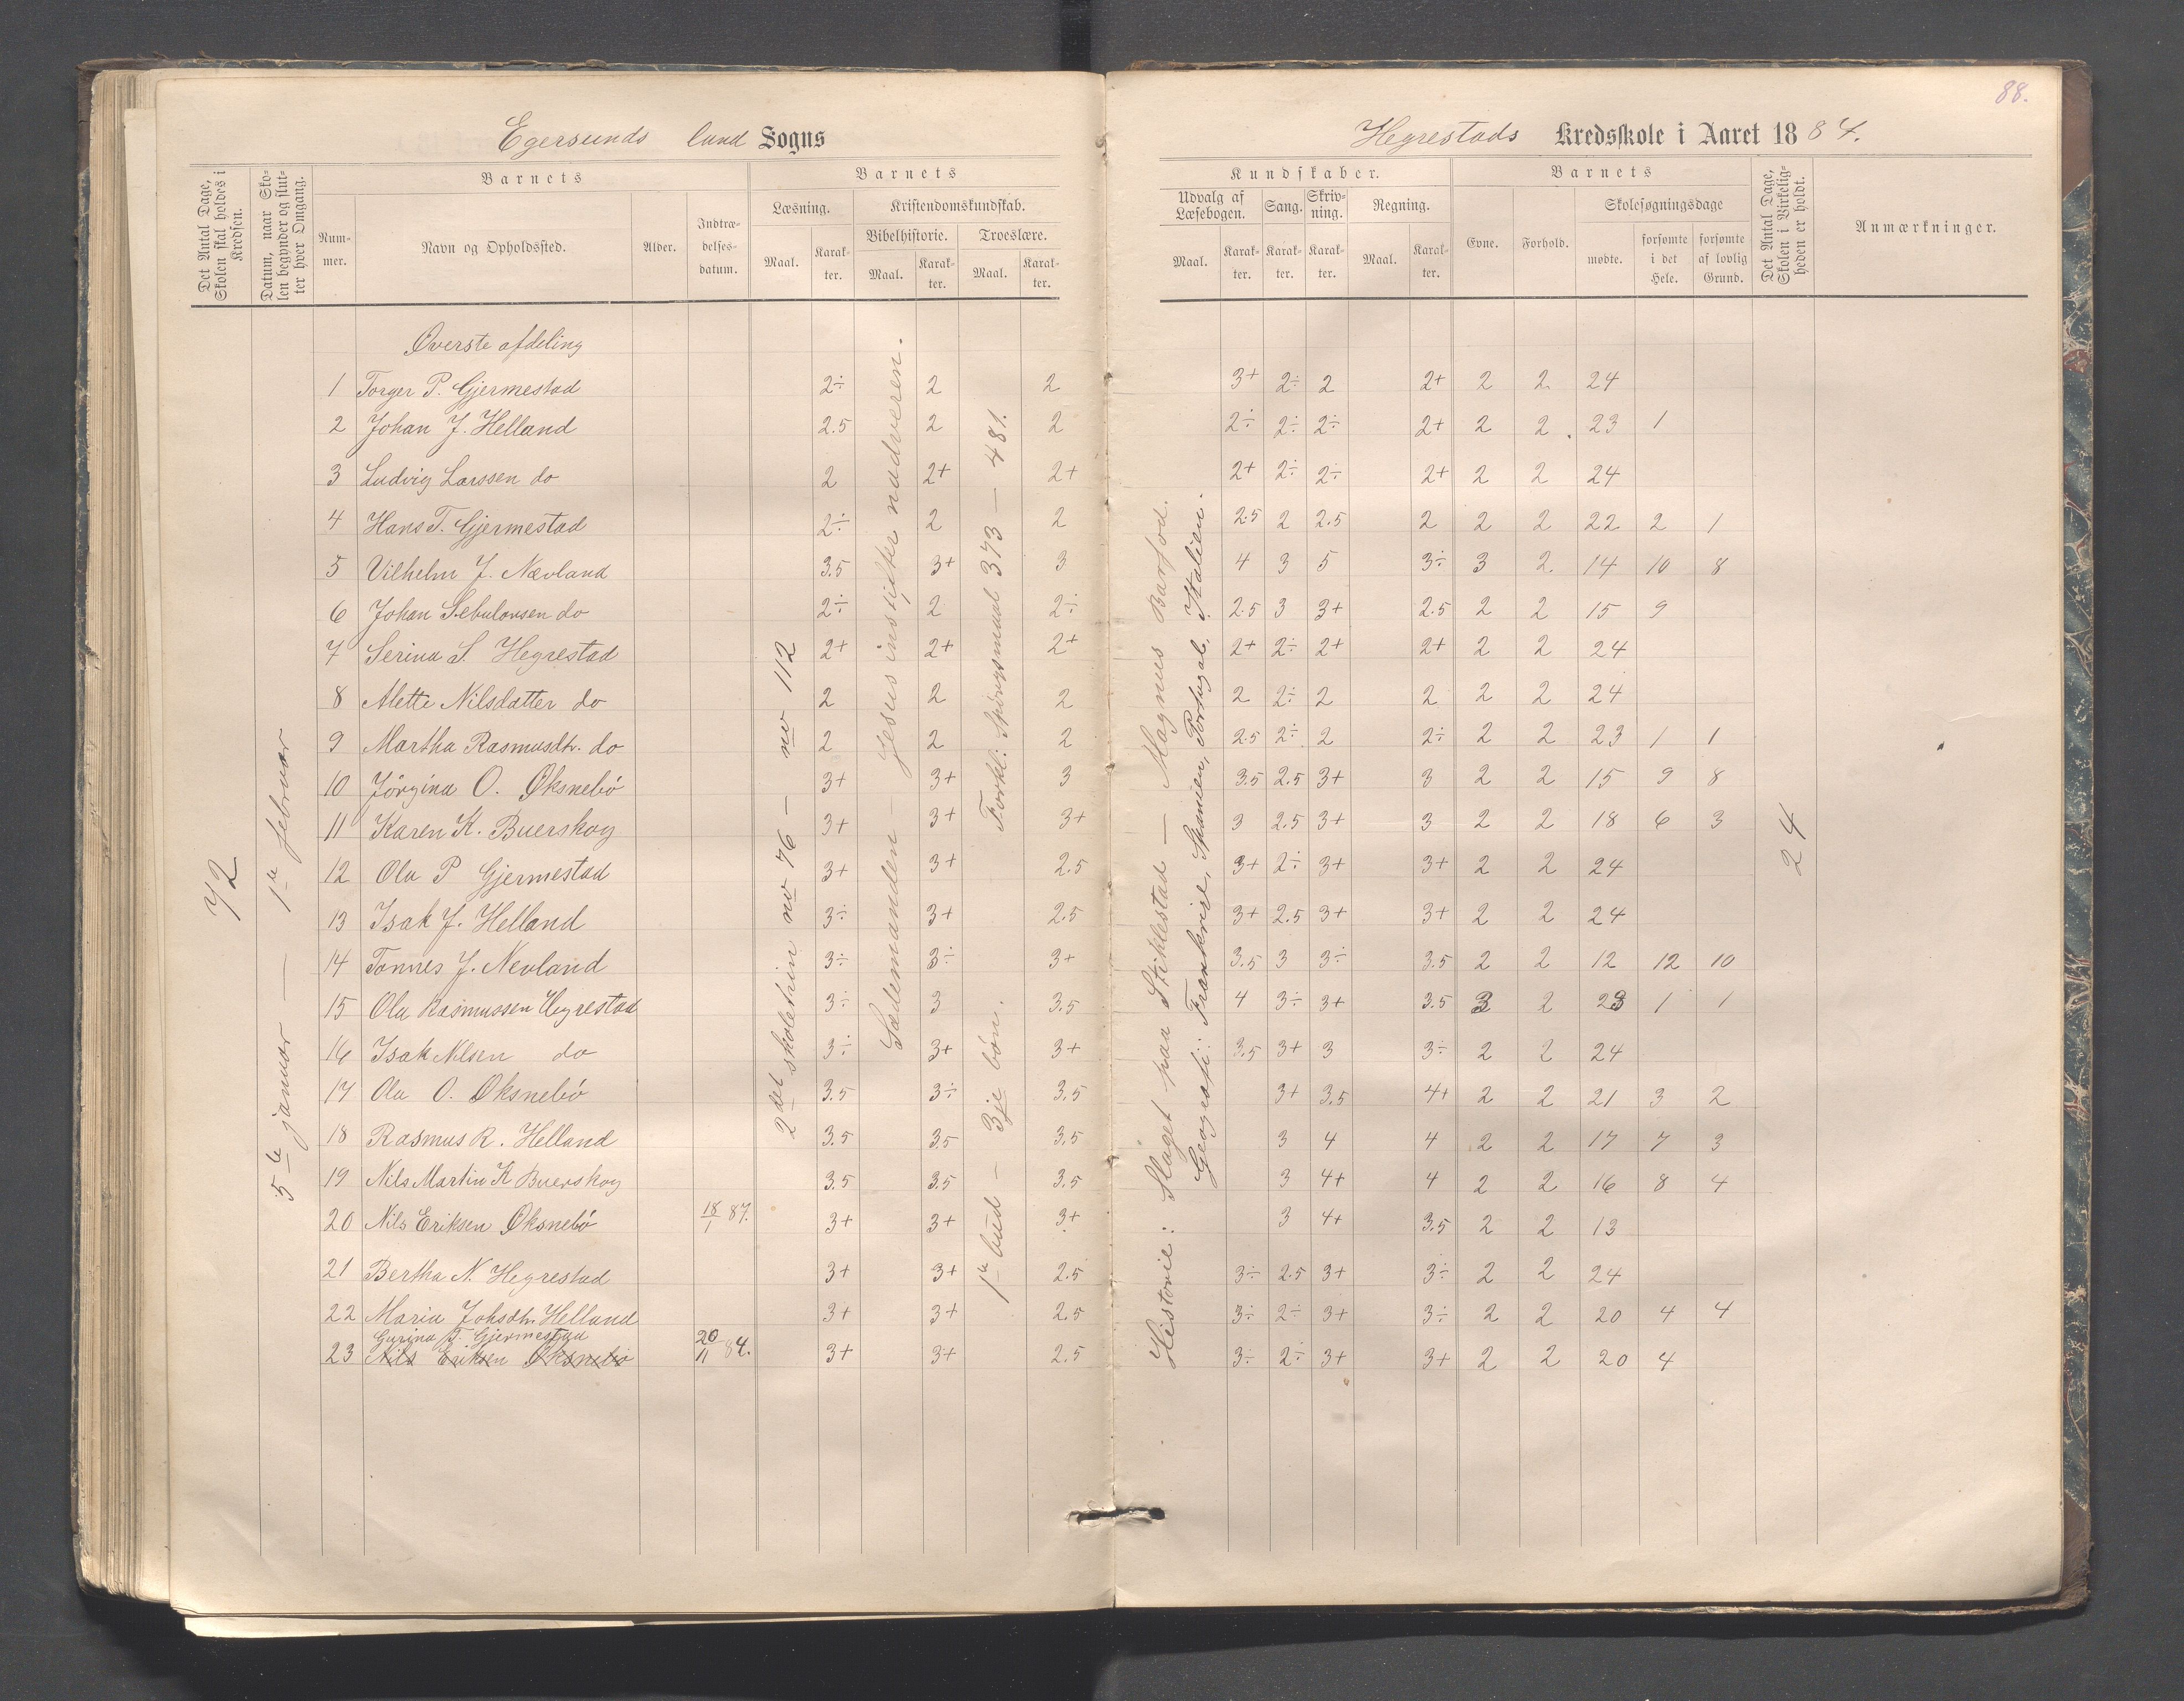 88.
Egersunds land Sogns
Hegrestads Kredsskole i Aaret 1884.
Det Antal Dage, Skolen skal holdes i Kredsen.
Datum, naar Skolen begynder og slutter hver Omgang.
Barnets
Nummer.
Navn og Opholdssted.
Alder.
Indtrædelsesdatum.
Barnets
Læsning.
Maal.
Karakter.
Kristendomskundskab.
Bibelhistorie.
Maal.
Karakter.
Troeslære.
Maal.
Karakter.
Kundskaber.
Udvalg af Læsebogen.
Maal.
Karakter.
Sang.
Karakter.
Skrivning.
Karakter.
Regning.
Maal.
Karakter.
Barnets
Evne.
Forhold.
Skolesøgningsdage
mødte.
forsømte i det Hele.
forsømte af lovlig Grund.
Det Antal Dage, Skolen i Virkeligheden er holdt.
Anmærkninger.
72
5te januar — 1te februar
2det skoletrin no 76 — no 112
Sædemanden — Jesus instifter nadveren.
Forkl: Spörgsmaal 373 — 481.
1te bud — 3je bön.
Historie: Slaget paa Stiklestad — Magnus Barfod.
Geografi: Frankrige, Spanien, Portugal, Italien.
24
Överste afdeling
1 Torger P. Gjermestad 2÷ 2 2 3+ 2÷ 2 2+ 2 2 24
2 Johan J. Helland 2.5 2 2 2÷ 2÷ 2÷ 2+ 2 2 23 1
3 Ludvig Larssen do 2 2+ 2+ 2+ 2÷ 2÷ 2+ 2 2 24
4 Hans T. Gjermestad 2÷ 2 2 2.5 2 2.5 2 2 2 22 2 1
5 Vilhelm J. Nævland 3.5 3+ 3 4 3 5 3÷ 3 2 14 10 8
6 Johan Sebulonsen do 2÷ 2 2÷ 2.5 3 3+ 2.5 2 2 15 9
7 Serina S. Hegrestad 2+ 2+ 2+ 2+ 2÷ 2+ 2+ 2 2 24
8 Alette Nilsdatter do 2 2 2 2 2÷ 2 2 2 2 24
9 Martha Rasmusdtr. do 2 2 2 2.5 2÷ 2 2÷ 2 2 23 1 1
10 Jörgina O. Øksnebö 3+ 3+ 3 3.5 2.5 3+ 3 2 2 15 9 8
11 Karen K. Buerskog 3+ 3+ 3+ 3 2.5 3+ 3 2 2 18 6 3
12 Ola P Gjermestad 3+ 3+ 2.5 3+ 2÷ 3+ 3+ 2 2 24
13 Isak J. Helland 3÷ 3+ 2.5 3+ 2.5 3+ 3+ 2 2 24
14 Tönnes J. Nevland 3÷ 3÷ 3+ 3.5 3 3÷ 3.5 2 2 12 12 10
15 Ola Rasmussen Hegrestad 3÷ 3 3.5 4 3÷ 3+ 3.5 3 2 23 1 1
16 Isak Nilsen do 3÷ 3+ 3+ 3.5 3+ 3 3÷ 2 2 24
17 Ola O. Øksnebö 3.5 3÷ 3.5 3+ 3.5 4+ 2 2 21 3 2
18 Rasmus R. Helland 3.5 3.5 3.5 3 4 4 2 2 17 7 3
19 Nils Martin K Buerskog 3.5 3.5 3.5 3 4+ 4 2 2 16 8 4
20 Nils Eriksen Øksnebö 18/1 87. 3+ 3+ 3+ 3 4+ 3.5 2 2 13
21 Bertha N. Hegrestad 3+ 3+ 2.5 3÷ 2.5 3+ 3÷ 2 2 24
22 Maria Johsdtr. Helland 3+ 3+ 2.5 3÷ 2÷ 3+ 3÷ 2 2 20 4 4
Gurina T. Gjermestad
23 Nils Eriksen Øksnebö 20/11 84. 3+ 3+ 2.5 3÷ 2÷ 3+ 3+ 2 2 20 4